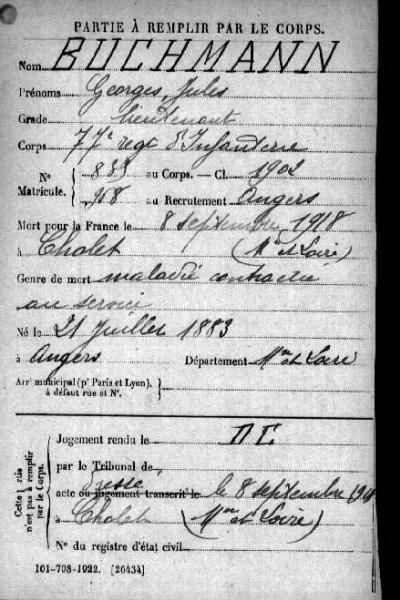 PARTIE À REMPLIR PAR LE CORPS.
Nom BUCHMANN
Prénoms Georges, Jules
Grade lieutenant
Corps 77e regt d'Infanterie
N° Matricule. { 839 au Corps. — Cl. 1902
968 au Recrutement Angers
Mort pour la France le 8 septembre 1918
à Cholet (M. et Loire)
Genre de mort maladie contractée
au service
Né le 21 Juillet 1883
à Angers Département M. et Loire
Arrt municipal (pr Paris et Lyon), à défaut rue et N°. {
Cette partie n'est pas à remplir par le Corps.
Jugement rendu le
par le Tribunal de
acte ou jugement transcrit le le 8 septembre 1918
à Cholet (M. et Loire)
N° du registre d'état civil
101-708-1922. [26434]